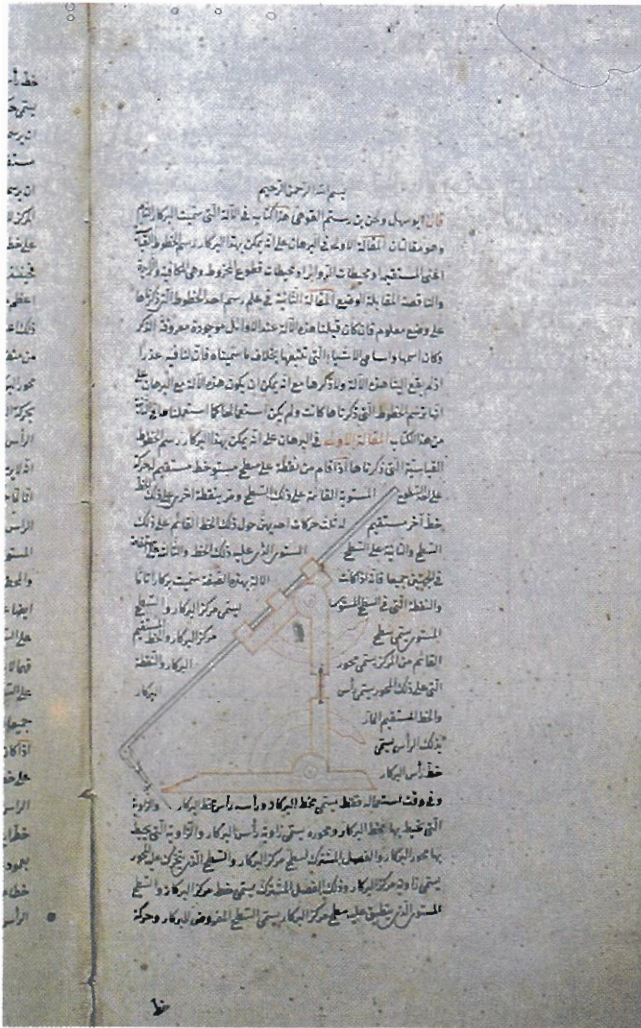 بسم الله الرحمن الرحيم
قال ابو سهل ويجن بن رستم القوهى هذا كتاب فى الآلة التى سميت البركار التام
وهو مقالتان المقالة الاولى فى البرهان على انه يمكن بهذا البركار رسم الخطوط القياسية
اعنى المستقيم ومحيطات الدوائر ومحيطات قطوع المخروط وهى المكافية والزائدة
والناقصة المقابلة الوضع المقالة الثانية فى علم رسم احد الخطوط التى ذكرناها
على وضع معلوم فان كان قبلنا هذه الآلة عند الاوائل موجودة معروفة الذكر
وكان اسمها واسامى الاشياء التى تتبعها بخلاف ما سميناه فان لنا فيه عذرا
اذ لم يقع الينا هذه الآلة ولا ذكرها مع انه يمكن ان يكون هذه الآلة مع البرهان على
انها ترسم الخطوط التى ذكرناها كانت ولم يكن استعمالها كما استعملناها فى الثانية
من هذا الكتاب المقالة الاولى فى البرهان على انه يمكن بهذا البركار رسم الخطوط
القياسية التى ذكرناها اذا قام من نقطة على سطح مستو خط مستقيم
على احد السطوح المستوية القائمة على ذلك السطح ومر بنقطة اخرى على ذلك الخط
خط آخر مستقيم له ثلث حركات احديهن حول ذلك الخط القائم على ذلك
السطح والثانية على السطح المستوى الذى عليه ذلك الخط والثالثة على
فى الجهتين جميعا فانه اذا كانت الآلة بهذه الصفة سميت بركارا تاما
والنقطة التى فى السطح المستوى يسمى مركز البركار والسطح
المستوى يسمى سطح مركز البركار والخط المستقيم
القائم من المركز يسمى محور البركار والنقطة
التى على ذلك المحور يسمى رأس البركار
والخط المستقيم المار
بذلك الرأس يسمى
خط رأس البركار
وفى وقت استعماله فقط يسمى بخط البركار ورأسه رأس خط البركار والزاوية
التى يحيط بها خط البركار ومحوره يسمى زاوية رأس البركار والزاوية التى يحيط
بها محور البركار والفصل المشترك لسطح مركز البركار والسطح الذى يتحرك عليه المحور
يسمى زاوية مركز البركار وذلك الفصل المشترك يسمى خط مركز البركار والسطح
المستوى الذى ينطبق عليه سطح مركز البركار يسمى السطح المفروض للبركار وحركة
خط